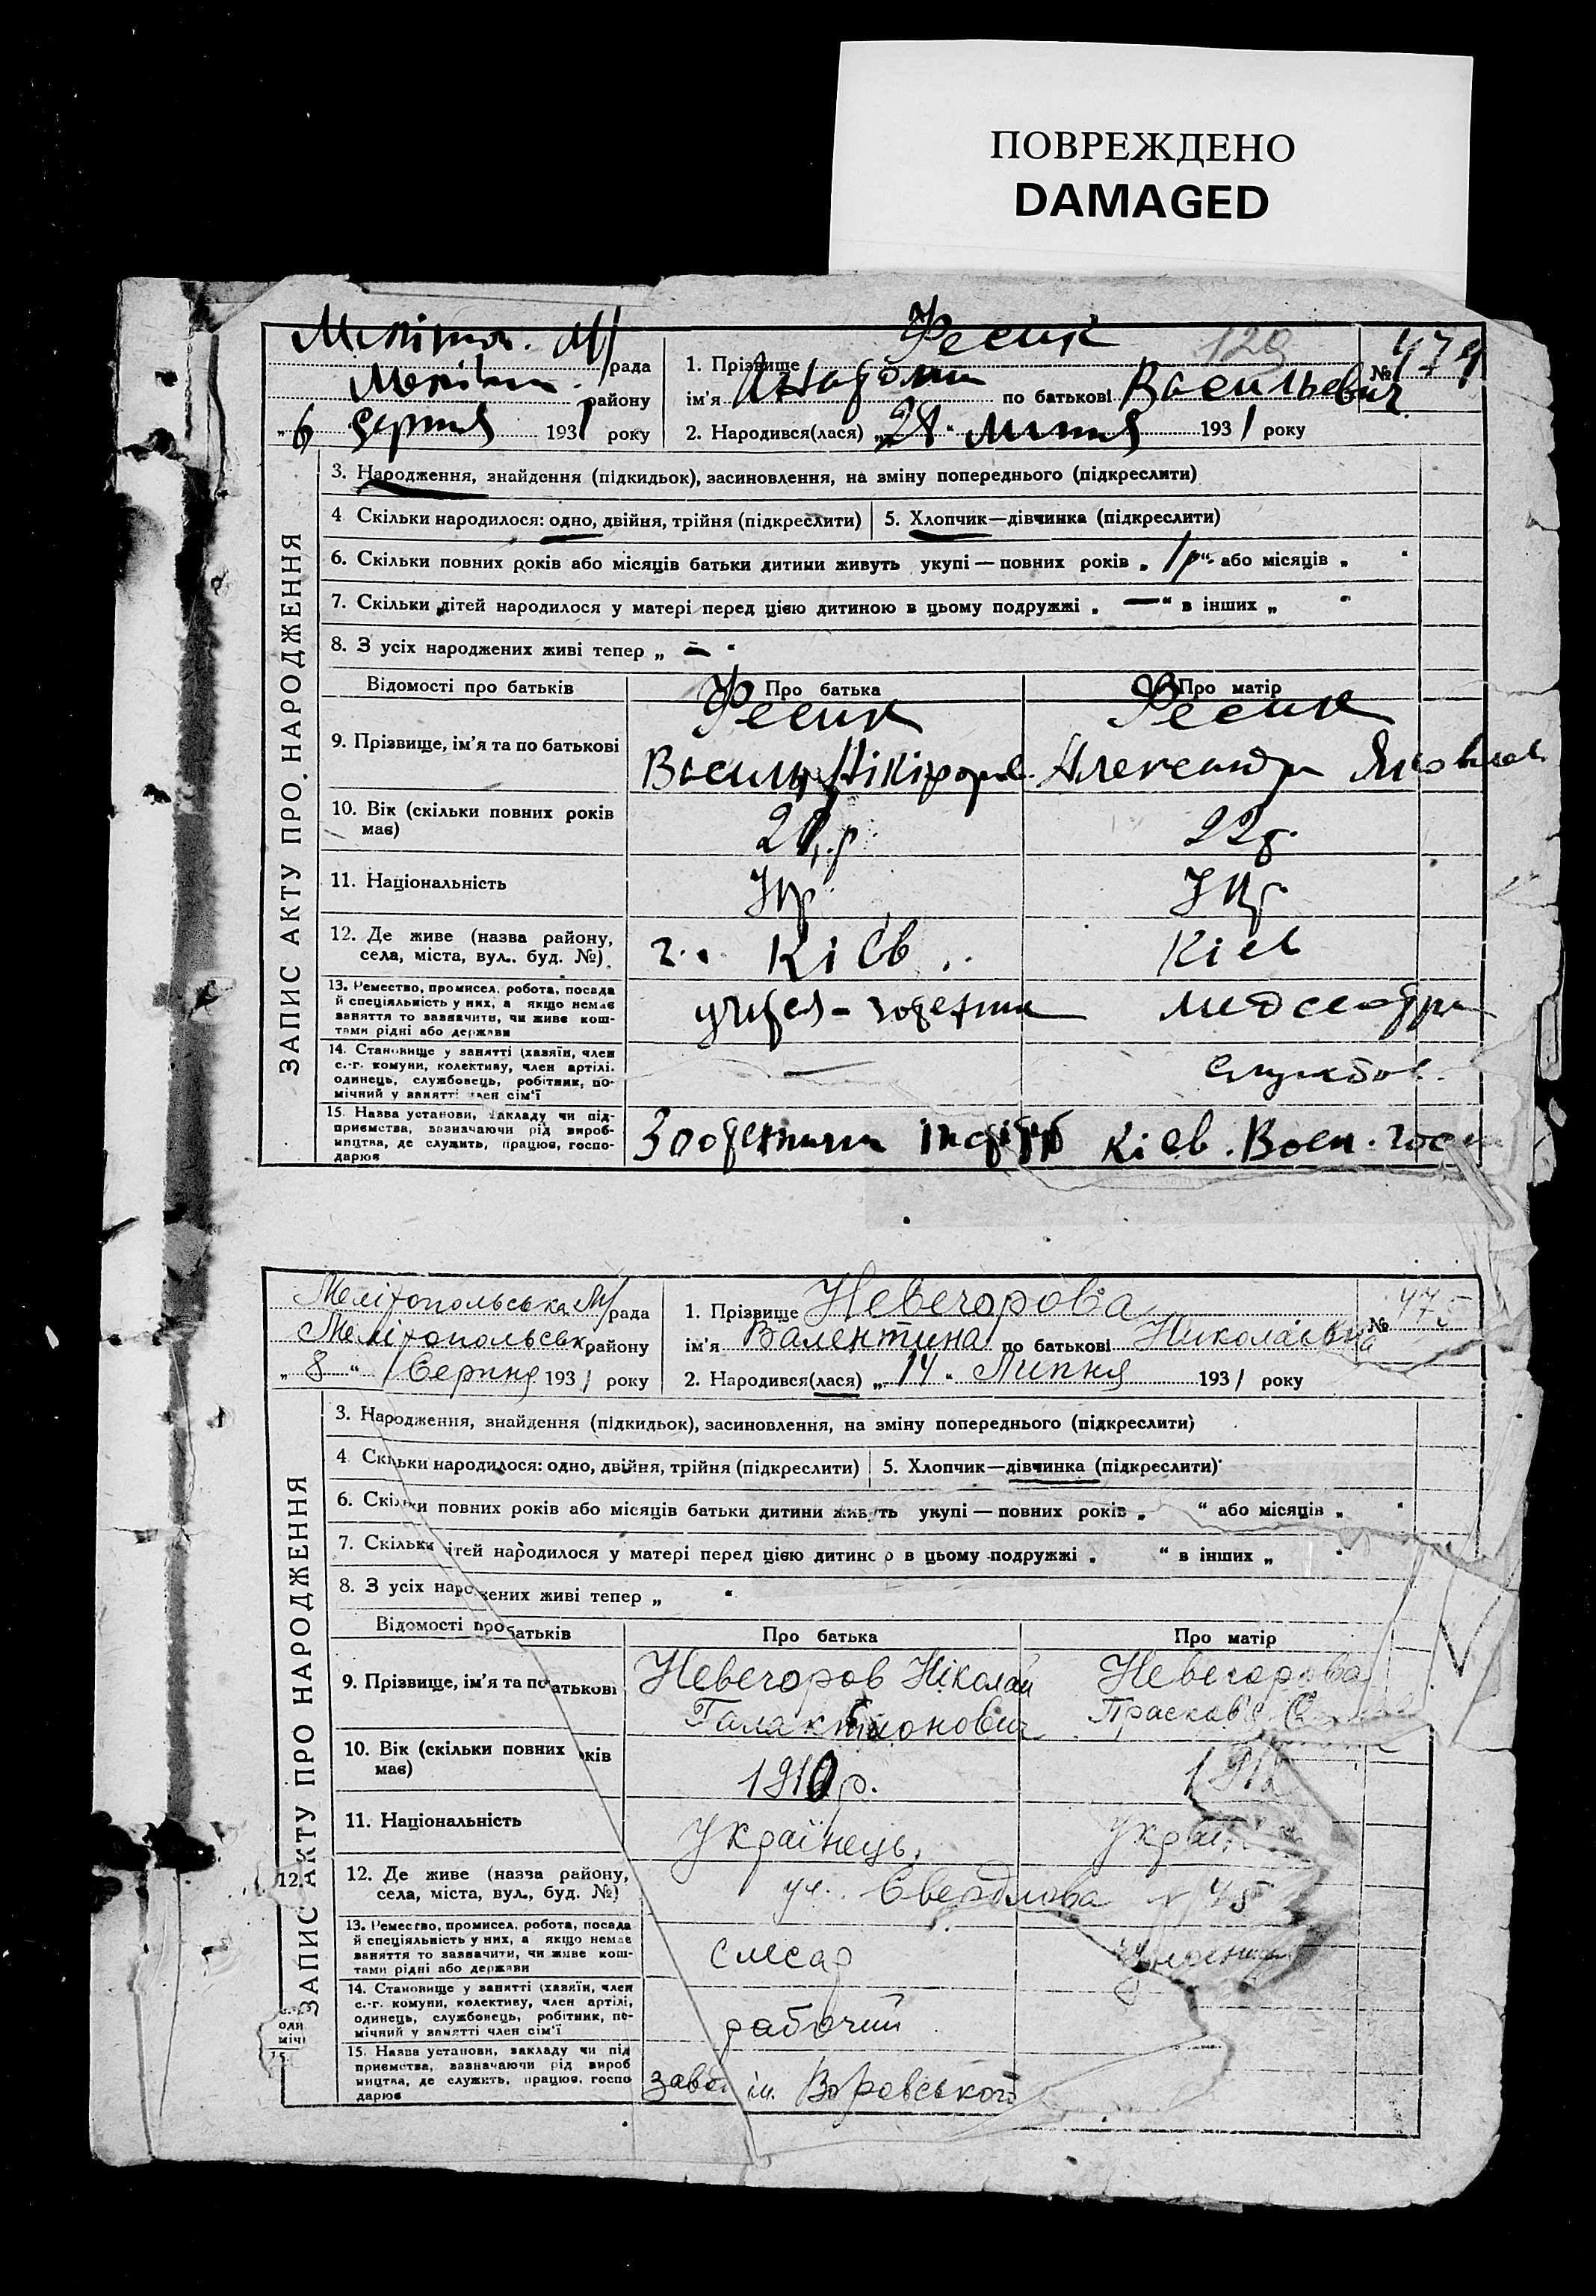 ПОВРЕЖДЕНО
DAMAGED
рада
району
6 серпня 1931 року
1. Прізвище Фесик
129
№ 474
ім'я по батькові Васильевич
2. Народився(лася) „ “ липня 1931 року
ЗАПИС АКТУ ПРО НАРОДЖЕННЯ
3. Народження, знайдення (підкидьок), засиновлення, на зміну попереднього (підкреслити)
4 Скільки народилося: одно, двійня, трійня (підкреслити) 5. Хлопчик—дівчинка (підкреслити)
6. Скільки повних років або місяців батьки дитини живуть укупі — повних років „ 1 р “ або місяців „ “
7. Скільки дітей народилося у матері перед цією дитиною в цьому подружжі „ — “ в інших „ “
8. З усіх народжених живі тепер „ — “
Відомості про батьків Про батька Про матір
9. Прізвище, ім'я та по батькові
Фесик Фесик
Василь Нікіфоров. Александра Яковлев
10. Вік (скільки повних років має)
22 р.
11. Національність
Укр. Укр.
12. Де живе (назва району, села, міста, вул. буд. №)
г. Кіев Кіев
13. Ремество, промисел, робота, посада й спеціяльність у них, а якщо немає заняття то зазначити, чи живе коштами рідні або держави
медсестра
14. Становище у занятті (хазяїн, член с.-г. комуни, колективу, член артілі, одинець, службовець, робітник, помічний у занятті член сім'ї
— службов.
15. Назва установи, закладу чи підприємства, зазначаючи рід виробництва, де служить, працює, господарює
Кіев. Воен. госп
Мелітопольська М/рада
Мелітопольськ району
„ 8 “ Серпня 1931 року
1. Прізвище Невечорова
№ 475
ім'я Валентина по батькові Николаївна
2. Народився(лася) „ 14 “ Липня 1931 року
ЗАПИС АКТУ ПРО НАРОДЖЕННЯ
3. Народження, знайдення (підкидьок), засиновлення, на зміну попереднього (підкреслити)
4 Скільки народилося: одно, двійня, трійня (підкреслити) 5. Хлопчик—дівчинка (підкреслити)
6. Скільки повних років або місяців батьки дитини живуть укупі — повних років „ “ або місяців „ “
7. Скільки дітей народилося у матері перед цією дитиною в цьому подружжі „ “ в інших „ “
8. З усіх народжених живі тепер „ “
Відомості про батьків Про батька Про матір
9. Прізвище, ім'я та по батькові
Невечоров Ніколай Невечорова
Галактионович Прасков'я
10. Вік (скільки повних років має)
1910 р.
11. Національність
Українець
12. Де живе (назва району, села, міста, вул., буд. №)
ул. Свердлова № 45
13. Ремество, промисел, робота, посада й спеціяльність у них, а якщо немає заняття то зазначити, чи живе коштами рідні або держави
слесар
14. Становище у занятті (хазяїн, член с.-г. комуни, колективу, член артілі, одинець, службовець, робітник, помічний у занятті член сім'ї
рабочий
15. Назва установи, закладу чи підприємства, зазначаючи рід виробництва, де служить, працює, господарює
завод ім. Воровського